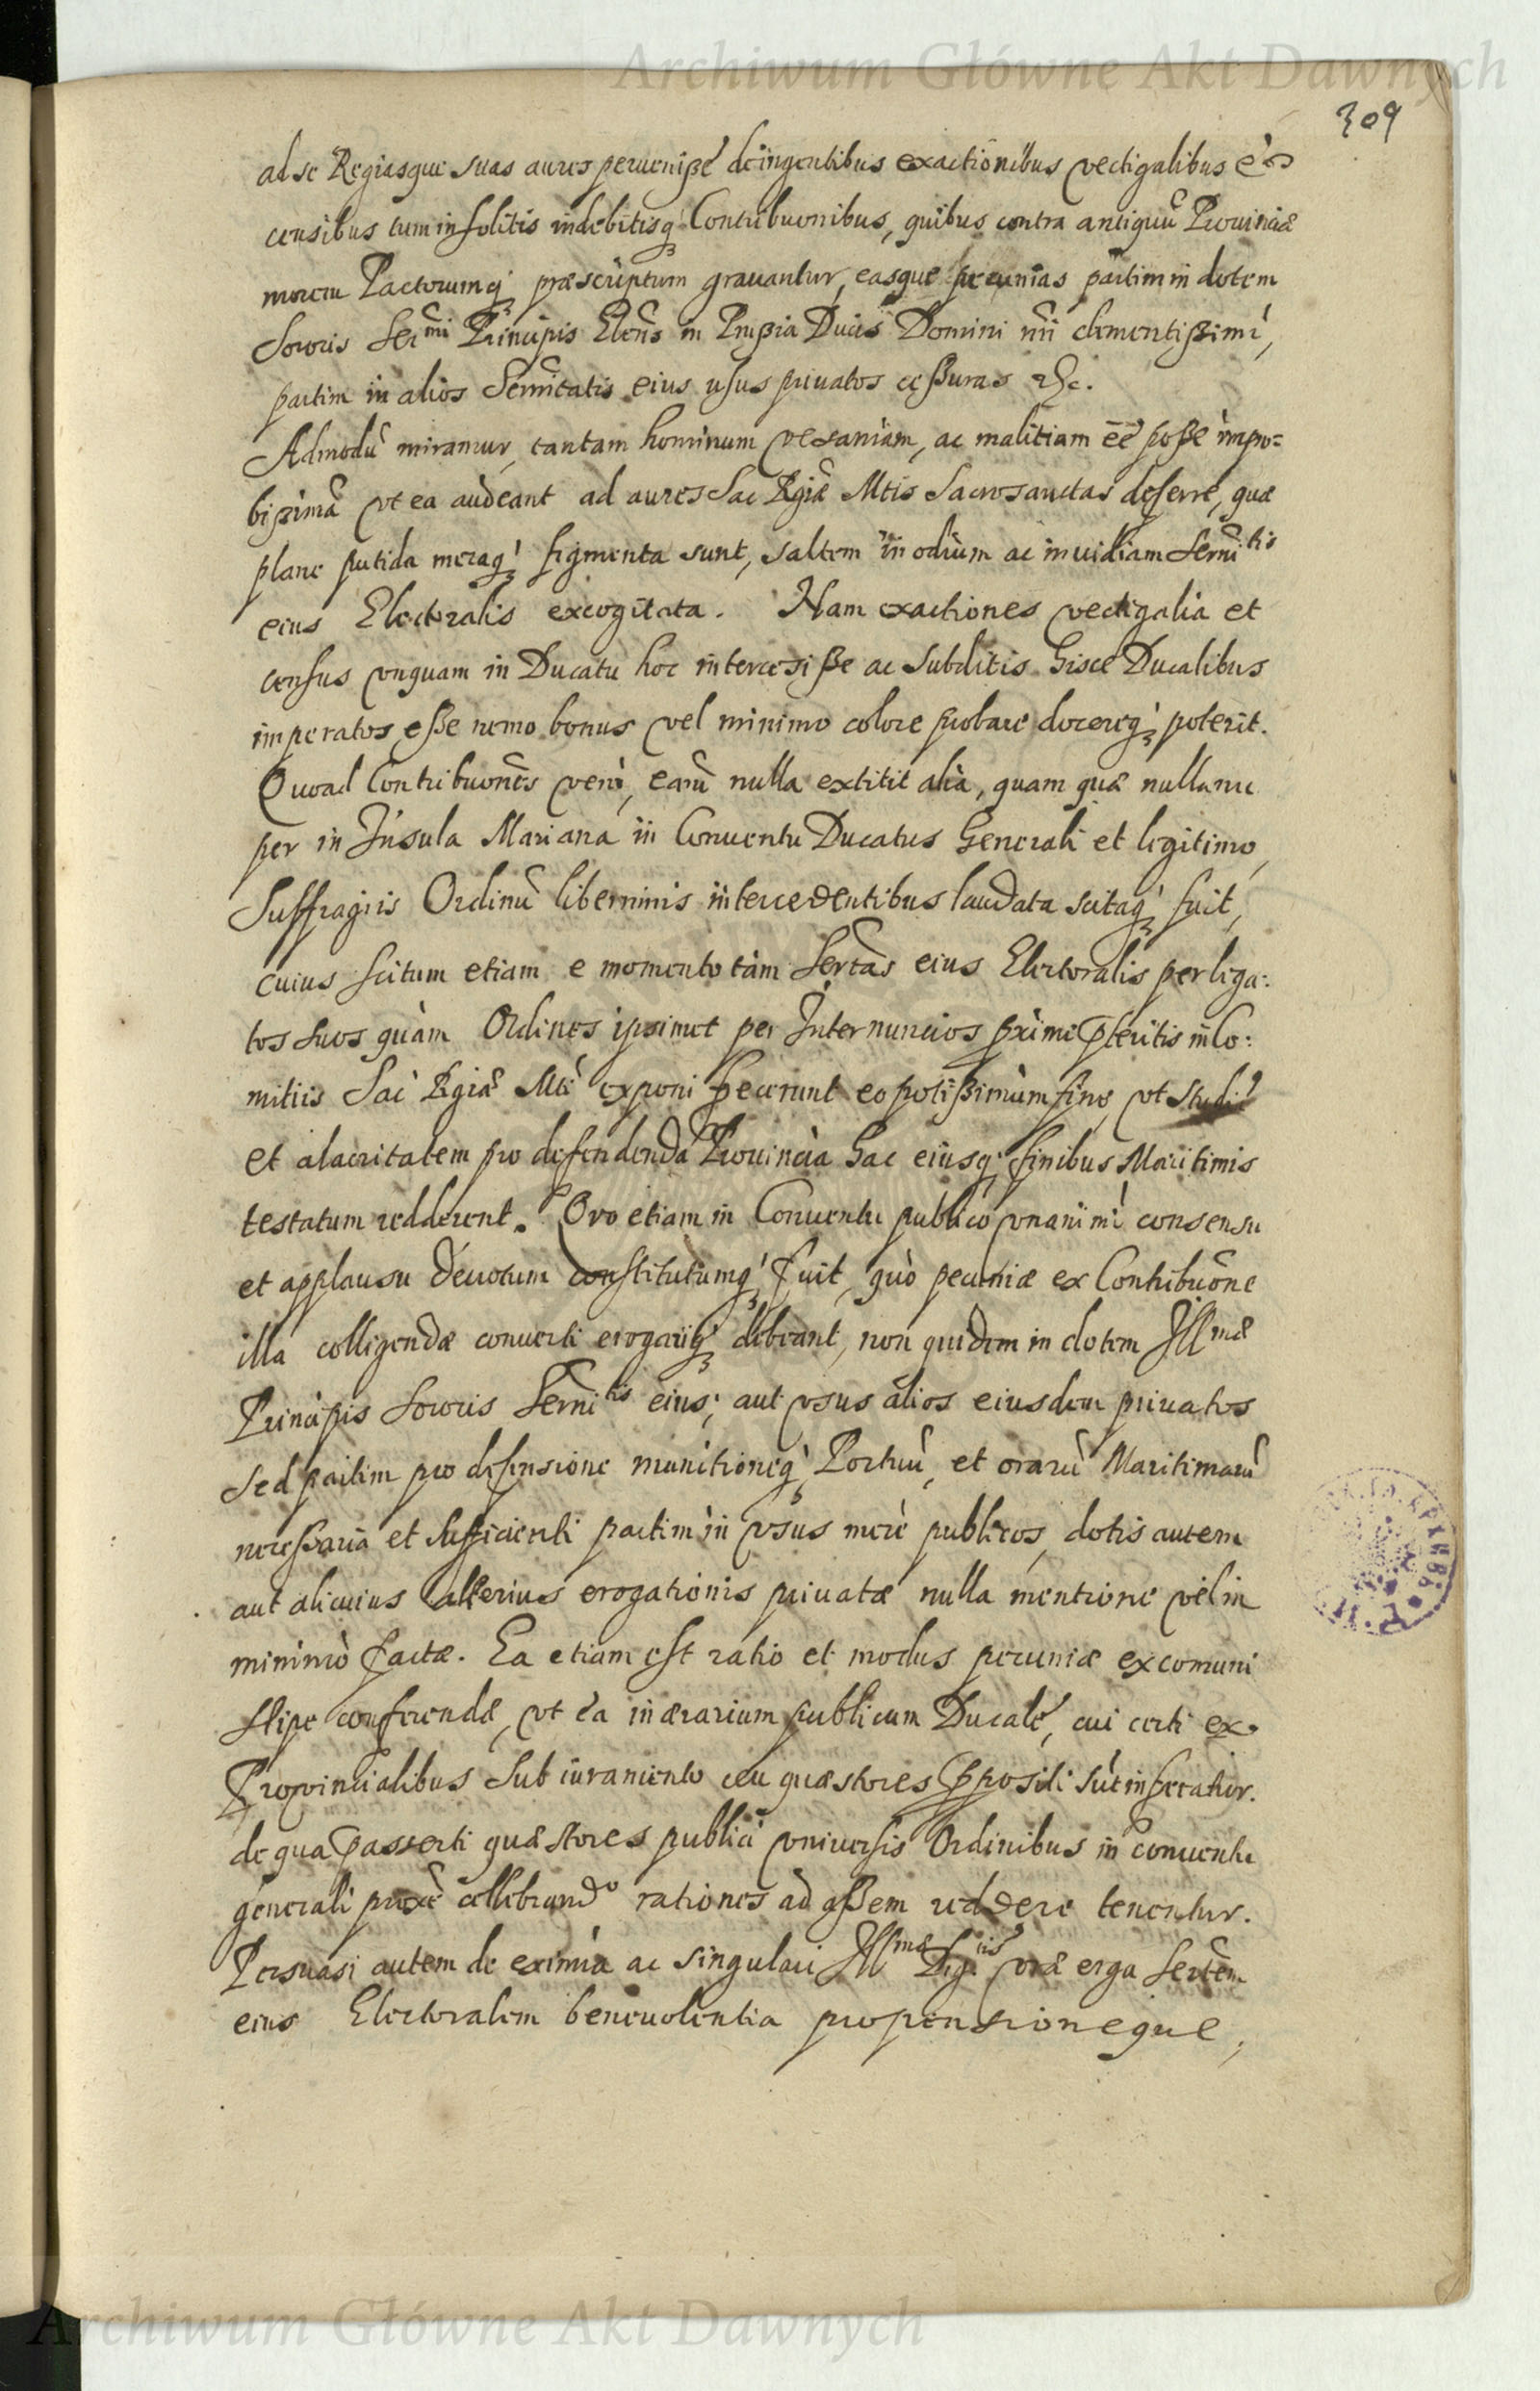 Archiwum Główne Akt Dawnych
309
ad se Regiasque suas aures peruenisse de ingentibus exactionibus vectigalibus et
censibus tum insolitis indebitisq́ Contribuonibus, quibus contra antiquũ Prouinciæ
morem Pactorumq́ præscriptum grauantur, easque pecunias partim in dotem
Sororis Ser̃mi Principis Elect̃s in Prussia Ducis Domini nr̃i clementissimi,
partim in alios Seren̄itatis eius usus priuatos cessuras etc.
Admodũ miramur, tantam hominum vesaniam, ac malitiam eē posse impro=
bissimã vt ea audeant ad aures Sac Rgiæ Mtis Sacrosanctas deferre, quæ
plane putida meraq́ figmenta sunt, saltem in odium ac inuidiam Sernĩtis
eius Electoralis excogitata. Nam exactiones vectigalia et
census vnquam in Ducatu hoc intercessisse ac Subditis hisce Ducalibus
imperatos esse nemo bonus vel minimo colore probare docereq́ poterit.
Quoad Contribuonẽs verò, earũ nulla extitit alia, quam quæ nullam
per in Insula Mariana in Conuentu Ducatus Generali et legitimo,
Suffragiis Ordinũ liberrimis intercedentibus laudata scitaq́ fuit,
cuius scitum etiam e momento tàm Sertãs eius Electoralis per lega:
tos suos quàm Ordines ipsimet per Internuncios proximè pteritis in Co:
mitiis Sac̀ Rgiæ Mti exponi fecerunt eo potissimùm fine, vt studiũ
et alacritatem pro defendenda Prouincia hac eiusq́ finibus Maritimis
testatum redderent. Quo etiam in Conuentu publico vnanimi consensu
et applausu deuotum constitutumq́ fuit, quò pecuniæ ex Contribuõne
illa colligendæ conuerti erogariq́ debeant, non quidem in dotem Illmæ
Principis Sororis Sernĩtis eius, aut vsus alios eiusdem priuatos
sed partim pro defensione munitioneq́ Portuũ, et orarũ Maritimarũ
necessaria et sufficienti partim in vsus merè publicos, dotis autem
aut alicuius alterius erogationis priuatæ nulla mentione vel in
minimo facta. Ea etiam est ratio et modus pecuniæ ex comuni
stipe conferendæ, vt ea in ærarium publicum Ducale, cui certi ex
Prouincialibus sub iuramento ceu quæstores ppositi sũt inferatur.
de qua passerti quæstores publici vniuersis Ordinibus in conuentu
generali proxè cellebrando rationes ad assem reddere tenentur.
Persuasi autem de eximia ac singulari Illmæ vræ erga Sertẽm
eius Electoralem beneuolentia propensioneque,
Archiwum Główne Akt Dawnych